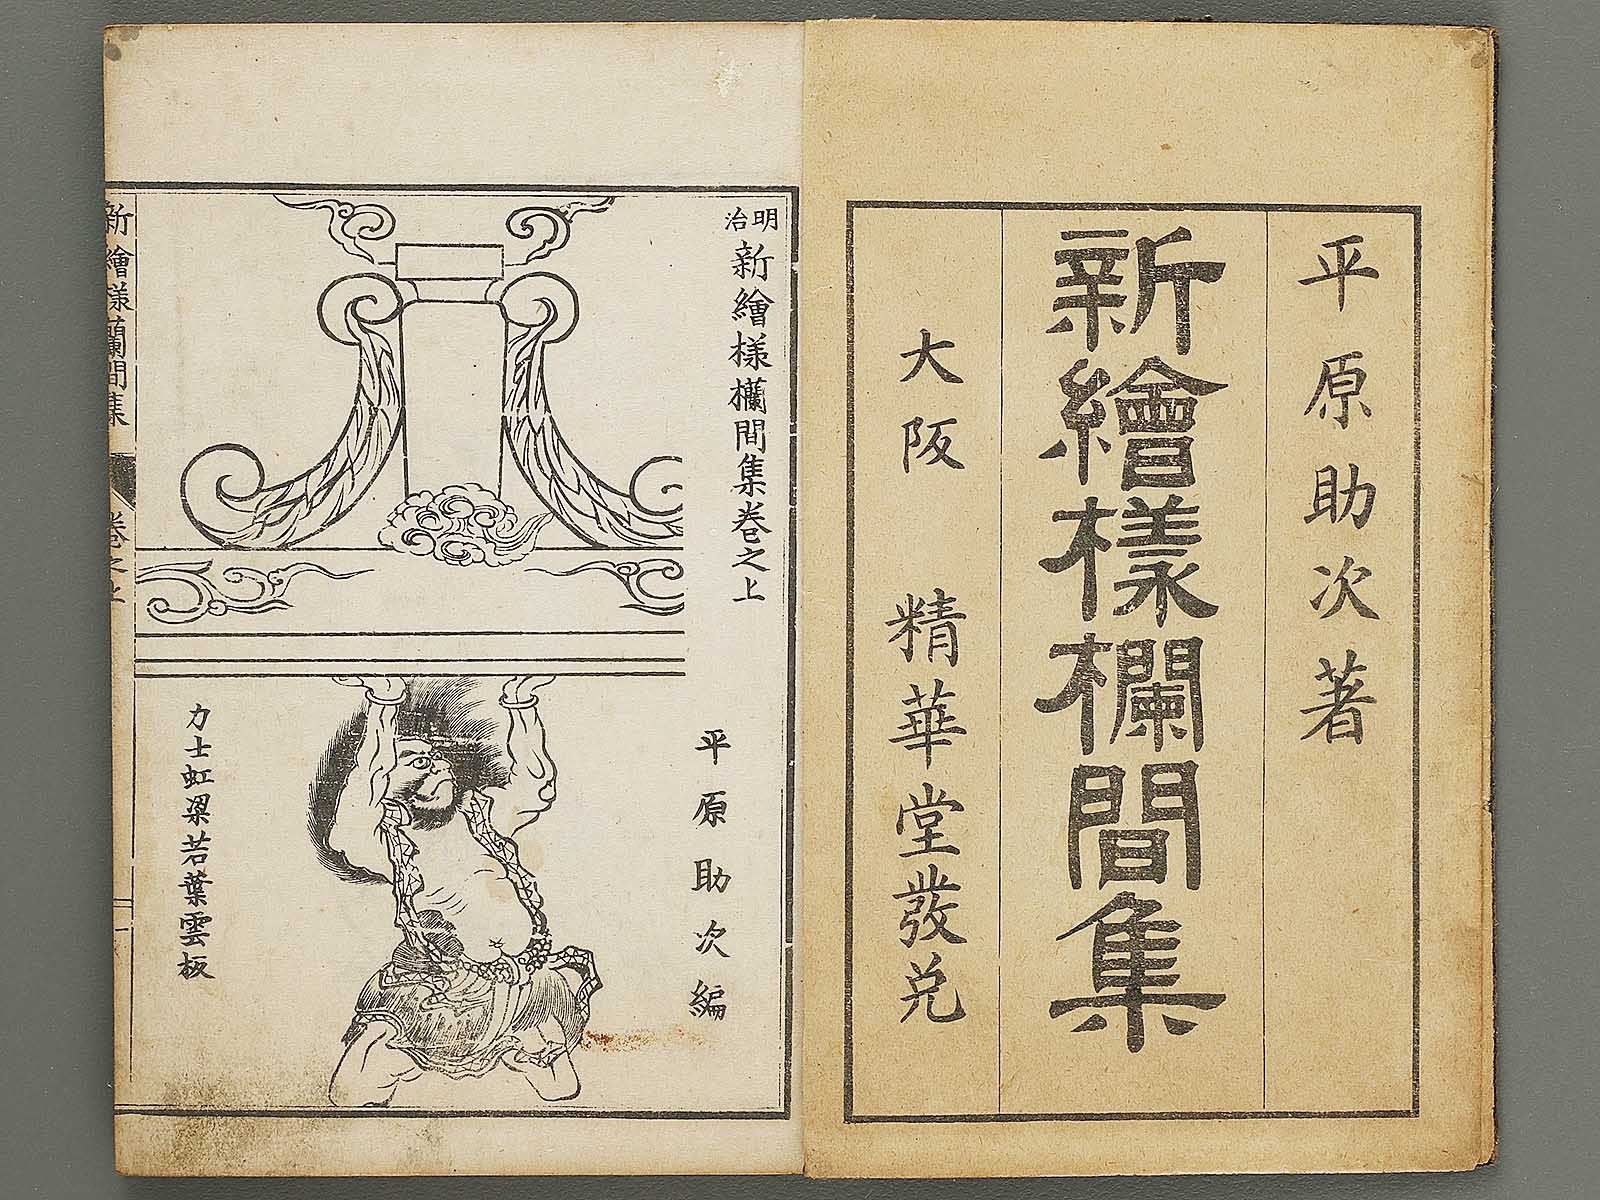 平原助次著
新繪樣欄間集
大阪 精華堂發兌
明治新繪樣欄間集卷之上
平原助次編
力士虹梁若葉雲板
新繪樣蘭間集 卷之上